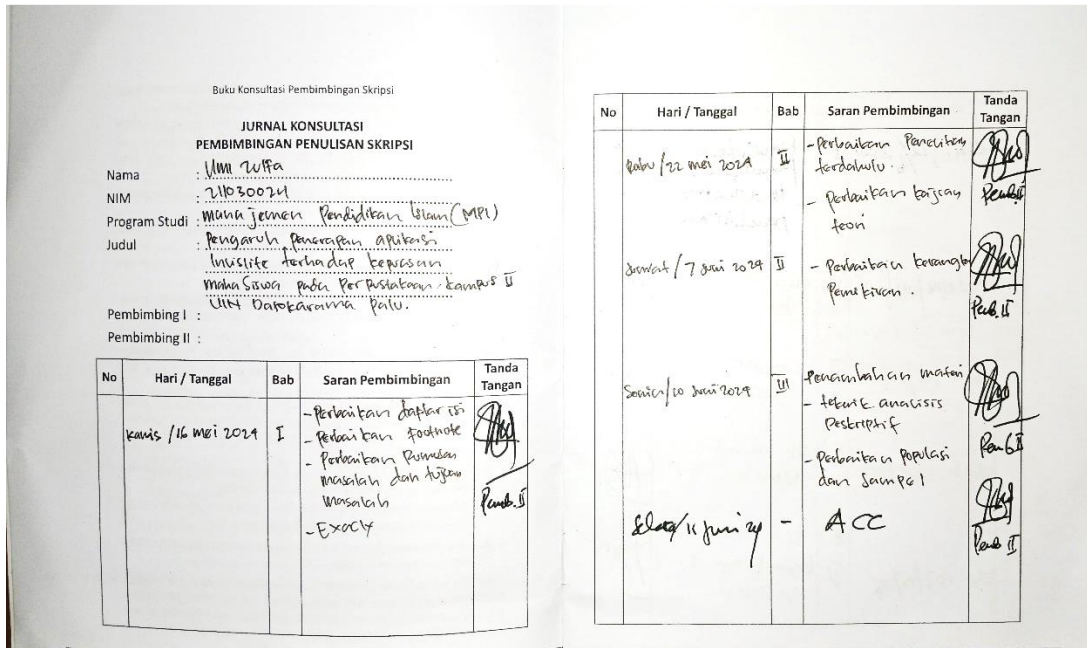 Buku Konsultasi Pembimbingan Skripsi
JURNAL KONSULTASI
PEMBIMBINGAN PENULISAN SKRIPSI
Nama : Umi Zulfa
NIM : 211030024
Program Studi : manajemen Pendidikan Islam (MPI)
Judul : Pengaruh penerapan aplikasi
Inlislite terhadap kepuasan
mahasiswa pada Perpustakaan kampus II
UIN Datokarama Palu.
Pembimbing I :
Pembimbing II :
No Hari / Tanggal Bab Saran Pembimbingan Tanda Tangan
kamis / 16 mei 2024 I - Perbaikan daftar isi
- Perbaikan Footnote
- Perbaikan Rumusan
masalah dan tujuan
masalah
Pemb. II
No Hari / Tanggal Bab Saran Pembimbingan Tanda Tangan
Rabu / 22 mei 2024 II - Perbaikan Penelitian
terdahulu.
- Perbaikan kajian
teori
Pemb II
Jum'at / 7 Juni 2024 II - Perbaikan kerangka
Pemikiran.
Pemb. II
Senin / 10 Juni 2024 III Penambahan materi
- teknik analisis
Deskriptif
Pemb II
- Perbaikan Populasi
dan Sampel
Selasa / 11 Juni 24 - ACC
Pemb II